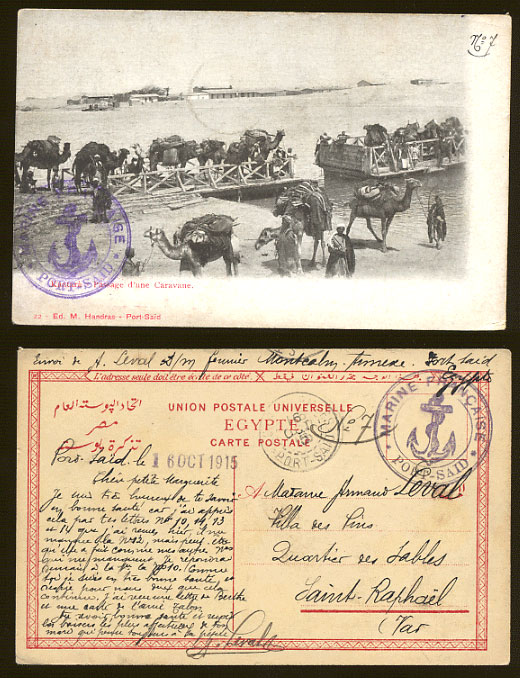 No 7
MARINE FRANÇAISE
PORT-SAÏD
Kantara Passage d'une Caravane.
22 - Ed. M. Handras - Port-Saïd
Envoi de A. Leval fourrier Montcalm Port Saïd
Egypte
L'adresse seule doit être écrite de ce côté
اتحاد البوستة العام
مصر
تذكرة بوستة
UNION POSTALE UNIVERSELLE
EGYPTE
CARTE POSTALE
No 7
PORT-SAID
MARINE FRANÇAISE
PORT-SAÏD
Port-Saïd le
16 OCT 1915
Chère petite Marguerite
Je suis très heureux de te savoir
en bonne santé car j'ai appris
cela par tes lettres No 10, 11, 13
et 14 que j'ai reçues hier, il me
manque la No 12, mais peut-être
qu'elle a fait comme mes autres Nos
à la No 10. Comme
toi je suis en très bonne santé, et
j'ai reçu une lettre de Berthe
et une carte de l'ami
bonne santé et reçois
les baisers les plus affectueux de ton
mari qui pense toujours à sa petite
A. Leval
A Madame Armand Leval
Villa des Pins
Quartier des Sables
Saint-Raphaël
(Var)